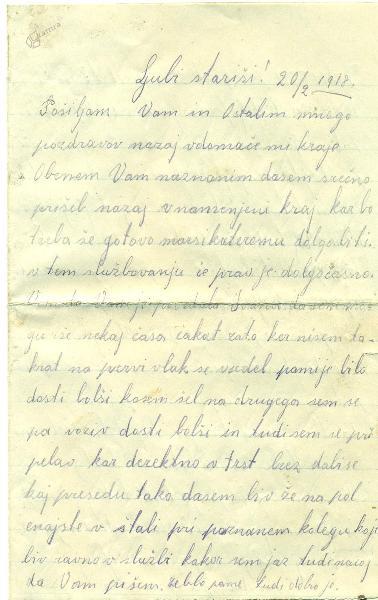 Ljubi stariši! 20/2 1918.
Pošiljam Vam in Ostalim mnogo
pozdravov nazaj vdomače mi kraje
Obenem Vam naznanim dasem srečno
prišel nazaj vnamenjeni kraj kar bo
treba še gotovo marsikateremu dolgo biti.
v tem službovanju če prav je dolgočasno.
Vam je Ivana da sem
še nekaj časa čakat zato ker nisem ta-
krat na pervi vlak se vsedel pamije bilo
dosti bolši kosem šel na drugega sem se
pa voziv dosti bolši in tudi sem se pri
pelav kar derektno v trst brez da bi se
kaj presedu tako dasem biv že na pol
enajste v štali pri poznanem kolegu koji
biv ravno v službi kakor sem jaz tudi nocoj
da Vam pišem. že bilo pame tudi dobro je.